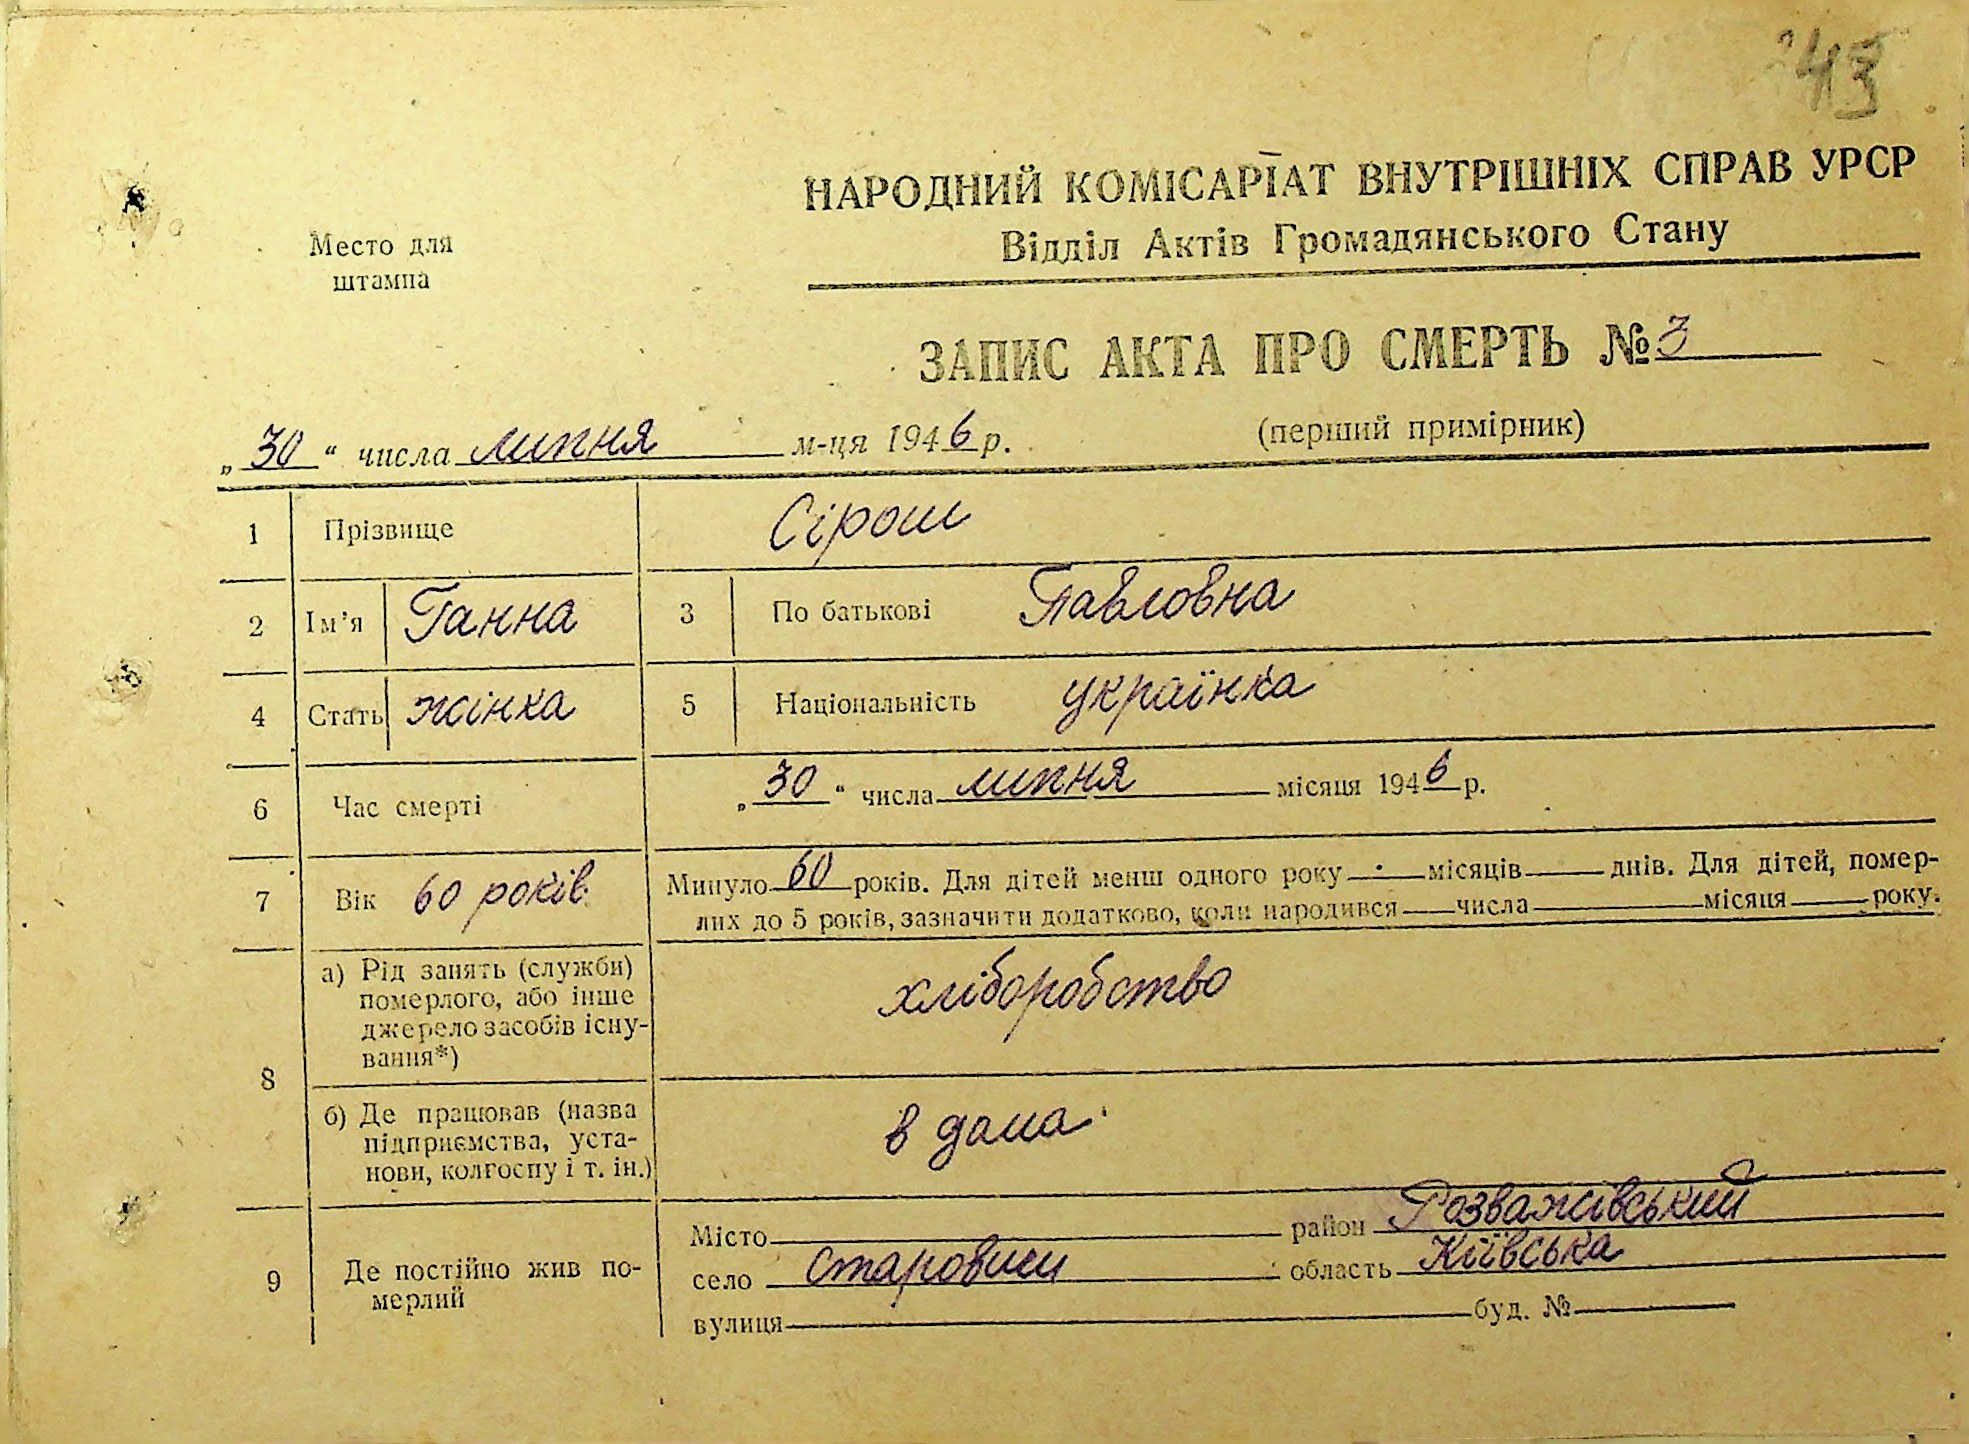 43
НАРОДНИЙ КОМІСАРІАТ ВНУТРІШНІХ СПРАВ УРСР
Відділ Актів Громадянського Стану
Место для
штампа
ЗАПИС АКТА ПРО СМЕРТЬ № 3
„30“ числа липня м-ця 1946 р.
(перший примірник)
1 Прізвище Сірош
2 Ім'я Ганна 3 По батькові Павловна
4 Стать жінка 5 Національність українка
6 Час смерті „30“ числа липня місяця 1946 р.
7 Вік 60 років Минуло 60 років. Для дітей менш одного року — місяців — днів. Для дітей, помер-
лих до 5 років, зазначити додатково, коли народився — числа — місяця — року.
8 а) Рід занять (служби)
померлого, або інше
джерело засобів існу-
вання*)
хліборобство
б) Де працював (назва
підприємства, уста-
нови, колгоспу і т. ін.)
в дома
9 Де постійно жив по-
мерлий
Місто район Розважівський
село Старовиси область Київська
вулиця буд. №